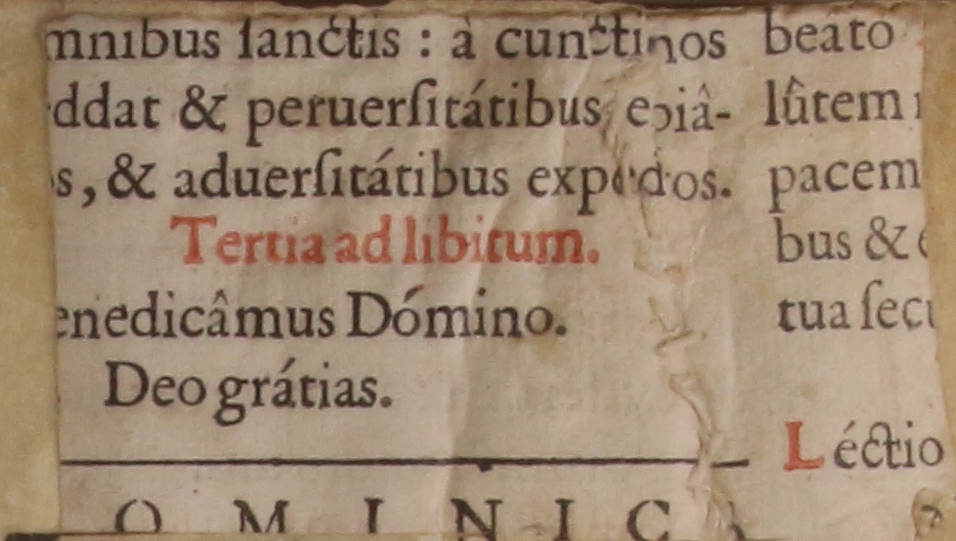 mnibus ſanctis : à cunctis nos
ddat & peruerſitátibus expiâ-
s, & aduerſitátibus expeditos.
Tertia ad libitum.
enedicâmus Dómino.
Deo grátias.
OMINIC
beato
lûtem
pacem
bus &
tua ſecu
Léctio